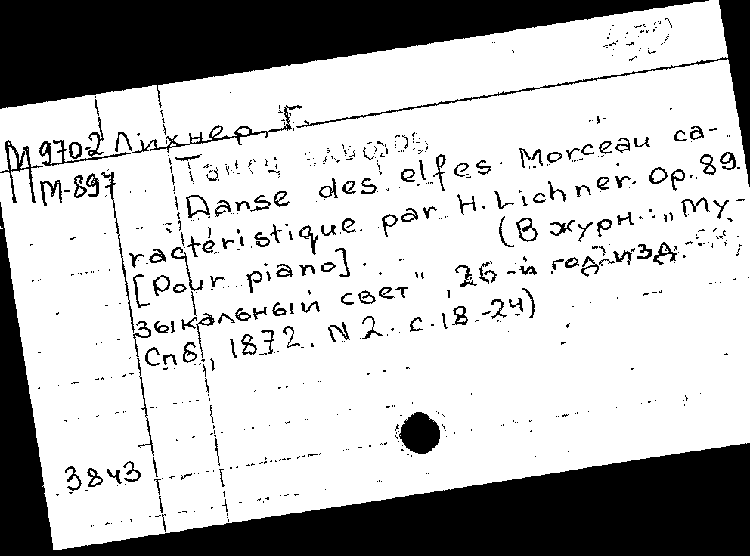 М 9702 Лихнер, Г.
М-897
Танец эльфов
Danse des elfes. Morceau ca-
ractéristique par H. Lichner. Op. 89.
[Pour piano]. (В журн.: „Му-
зыкальный свет", 26-й год изд.
Спб., 1872. N 2. с. 18-24)
3843